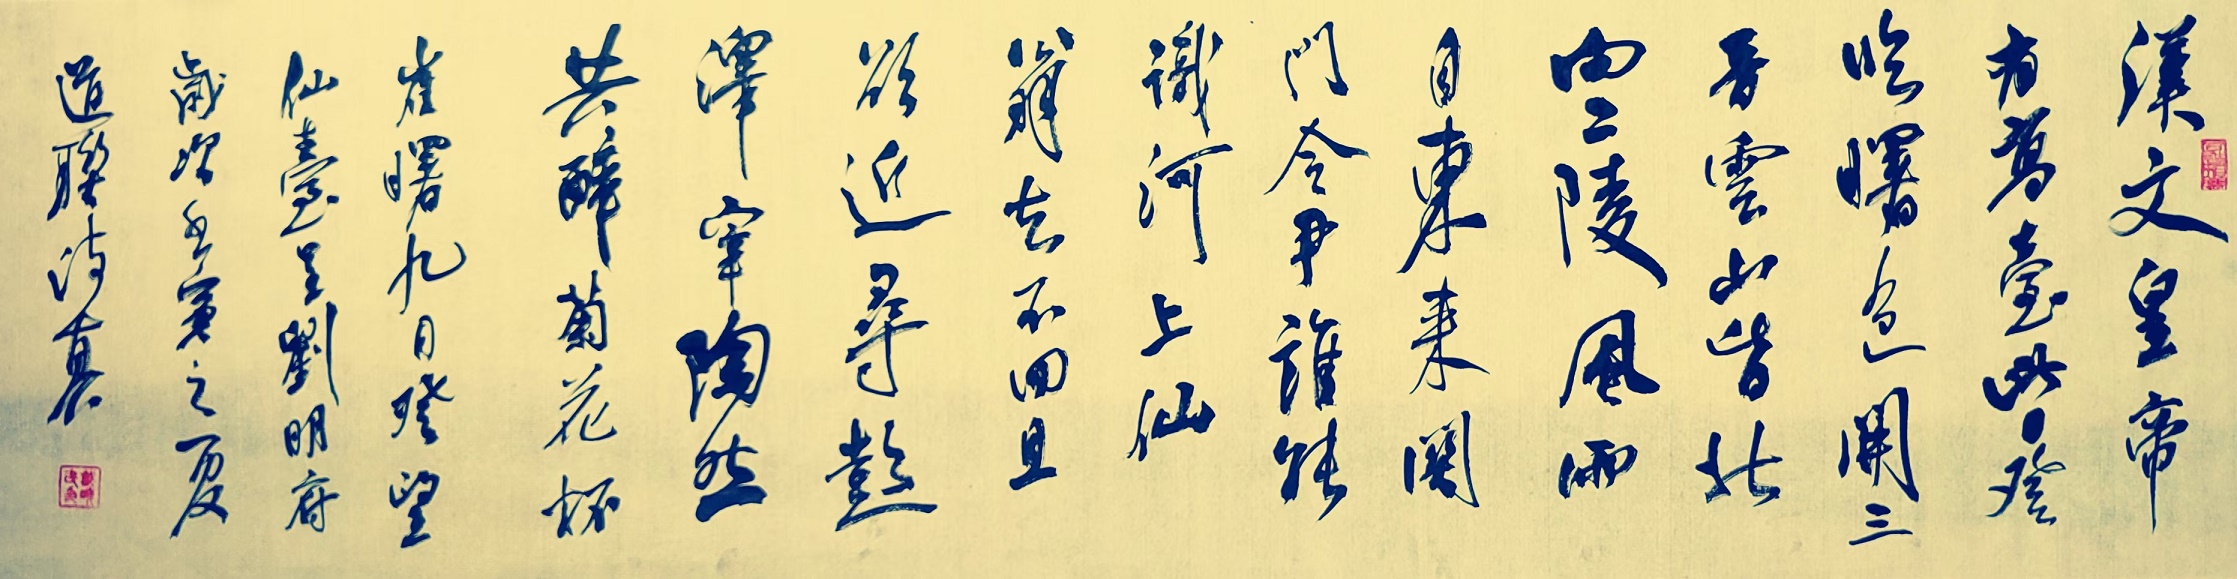 漢文皇帝
有高臺此日登
臨曙色開三
晉雲山皆北
向二陵風雨
自東來關
門令尹誰能
識河上仙
翁去不回且
欲近尋彭
澤宰陶然
共醉菊花杯
崔曙九日登望
仙臺呈劉明府
歲次寅之夏
道聯